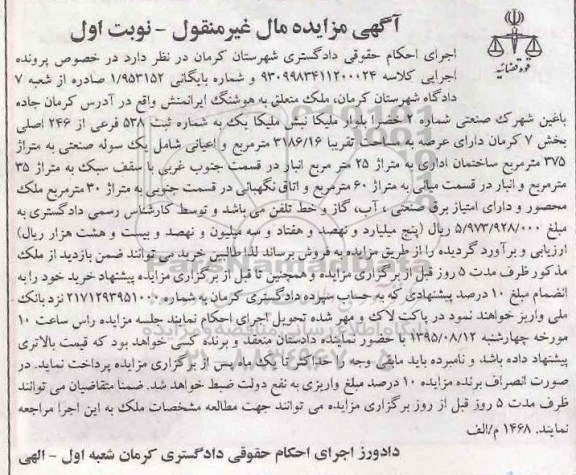 آگهی مزایده مال غیرمنقول - نوبت اول
قوه قضائیه
اجرای احکام حقوقی دادگستری شهرستان کرمان در نظر دارد در خصوص پرونده
اجرایی کلاسه ۹۳۰۹۹۸۳۴۱۱۲۰۰۰۲۴ و شماره بایگانی ۱/۹۵۳۱۵۲ صادره از شعبه ۷
دادگاه شهرستان کرمان، ملک متعلق به هوشنگ ایرانمنش واقع در آدرس کرمان جاده
باغین شهرک صنعتی شماره ۲ خضرا بلوار ملیکا نبش ملیکا یک به شماره ثبت ۵۳۸ فرعی از ۲۴۶ اصلی
بخش ۷ کرمان دارای عرصه به مساحت تقریبا ۳۱۸۶/۱۶ مترمربع و اعیانی شامل یک سوله صنعتی به متراژ
۳۷۵ مترمربع ساختمان اداری به متراژ ۲۵ متر مربع انبار در قسمت جنوب غربی با سقف سبک به متراژ ۳۵
مترمربع و انبار در قسمت میانی به متراژ ۶۰ مترمربع و اتاق نگهبانی در قسمت جنوبی به متراژ ۳۰ مترمربع ملک
محصور و دارای امتیاز برق صنعتی ، آب، گاز و خط تلفن می باشد و توسط کارشناس رسمی دادگستری به
مبلغ ۵/۹۷۳/۹۲۸/۰۰۰ ریال (پنج میلیارد و نهصد و هفتاد و سه میلیون و نهصد و بیست و هشت هزار ریال)
ارزیابی و برآورد گردیده را از طریق مزایده به فروش برساند لذا طالبین خرید می توانند ضمن بازدید از ملک
مذکور ظرف مدت ۵ روز قبل از برگزاری مزایده و همچنین تا قبل از برگزاری مزایده پیشنهاد خرید خود را به
انضمام مبلغ ۱۰ درصد پیشنهادی که به حساب سپرده دادگستری کرمان به شماره ۲۱۷۱۲۹۳۹۵۱۰۰۰ نزد بانک
ملی واریز خواهند نمود در پاکت لاک و مهر شده تحویل اجرای احکام نمایند جلسه مزایده راس ساعت ۱۰
مورخه چهارشنبه ۱۳۹۵/۰۸/۱۲ با حضور نماینده دادستان منعقد و برنده کسی خواهد بود که قیمت بالاتری
پیشنهاد داده باشد و نامبرده باید مابقی وجه را حداکثر تا یک ماه پس از برگزاری مزایده پرداخت نماید. در
صورت انصراف برنده مزایده ۱۰ درصد مبلغ واریزی به نفع دولت ضبط خواهد شد. ضمنا متقاضیان می توانند
ظرف مدت ۵ روز قبل از روز برگزاری مزایده می توانند جهت مطالعه مشخصات ملک به این اجرا مراجعه
نمایند. ۱۴۶۸ م/الف
دادورز اجرای احکام حقوقی دادگستری کرمان شعبه اول - الهی